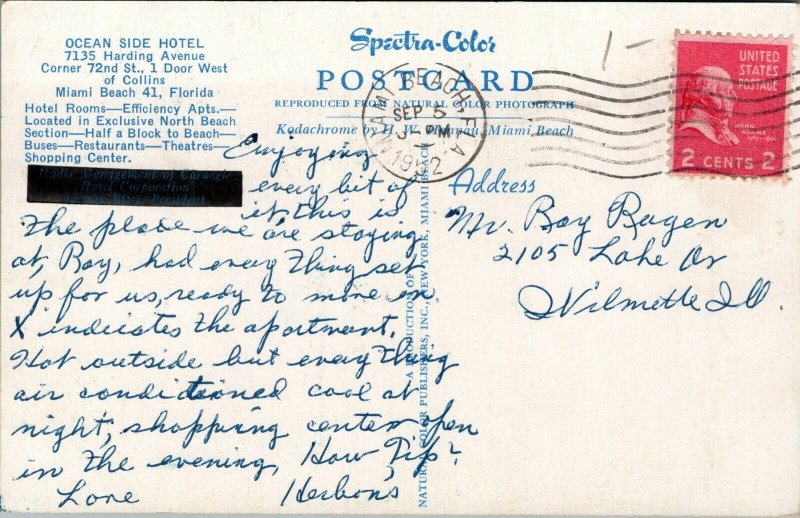 OCEAN SIDE HOTEL
7135 Harding Avenue
Corner 72nd St., 1 Door West
of Collins
Miami Beach 41, Florida
Hotel Rooms—Efficiency Apts.—
Located in Exclusive North Beach
Section—Half a Block to Beach—
Buses—Restaurants—Theatres—
Shopping Center.
Under Management of Carnegie
Hotel Corporation
President
Spectra-Color
POSTCARD
REPRODUCED FROM NATURAL COLOR PHOTOGRAPH
Kodachrome by H. W. Hannau, Miami Beach
MIAMI BEACH, FLA.
SEP 5
3 PM
1952
1-
UNITED
STATES
POSTAGE
JOHN
ADAMS
1797-1801
2 CENTS 2
Enjoying
every bit of
it, this is
the place we are staying
at, Roy, had every thing set
up for us, ready to move in
X indicates the apartment.
Hot outside but every thing
air conditioned cool at
night, shopping center open
in the evening, How, Tip?
Love Herbons
A PRODUCTION OF
NATURAL COLOR PUBLISHERS, INC., NEW YORK, MIAMI BEACH
Address
Mr. Roy Ragen
2105 Lake Av
Wilmette Ill.